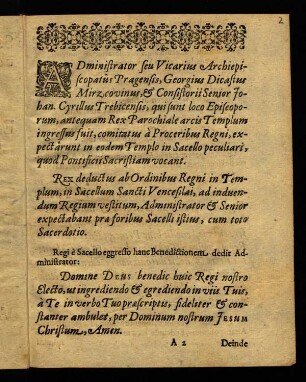 2
ADministrator seu Vicarius Archiepi-
scopatûs Pragensis, Georgius Dicastus
Mirz,covinus, & Consistorii Senior Jo-
han. Cyrillus Trebicensis, qui sunt loco Episcopo-
rum, antequam Rex Parochiale arcis Templum
ingressus fuit, comitatus à Proceribus Regni, ex-
pectârunt in eodem Templo in Sacello peculiari,
quod Pontificii Sacristiam vocant.
REX deductus ab Ordinibus Regni in Tem-
plum, in Sacellum Sancti Venceslai, ad induen-
dum Regium vestitum, Administrator & Senior
expectabant præ foribus Sacelli istius, cum toto
Sacerdotio.
Regi è Sacello egresso hanc Benedictionem dedit Ad-
ministrator:
DOMINE DEUS benedic huic Regi nostro
Electo, ut ingrediendo & egrediendo in viis Tuis,
à Te in verbo Tuo præscriptis, fideliter & con-
stanter ambulet, per Dominum nostrum JESUM
Christum, Amen.
A 2 Deinde